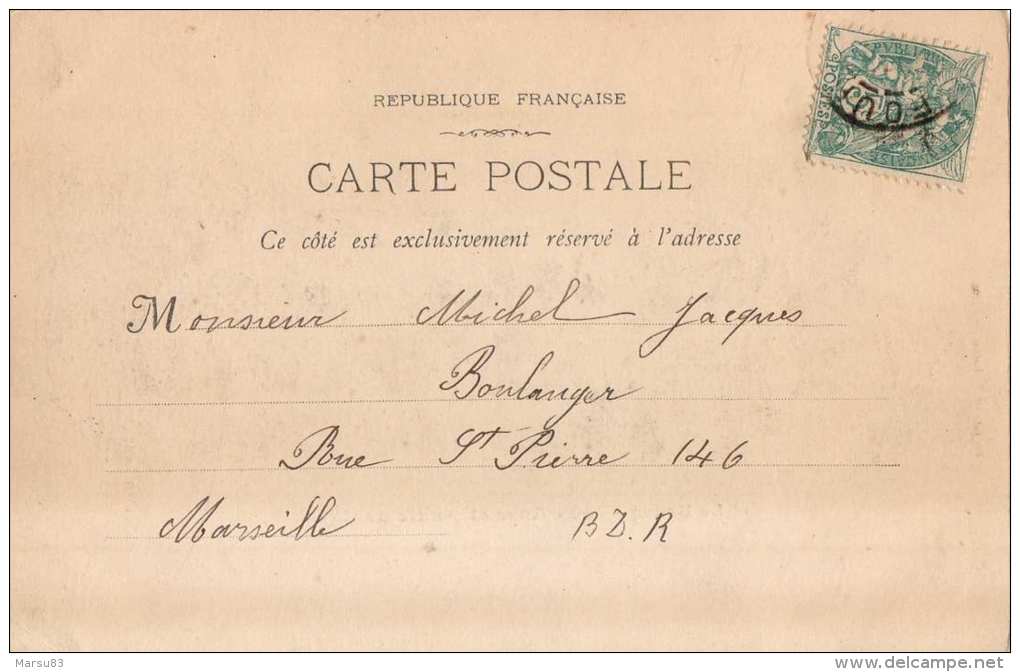 REPUBLIQUE FRANÇAISE
CARTE POSTALE
Ce côté est exclusivement réservé à l'adresse
Monsieur Michel Jacques
Boulanger
Rue St Pierre 146
Marseille B D. R
POSTES
Marsu83
delcampe.net